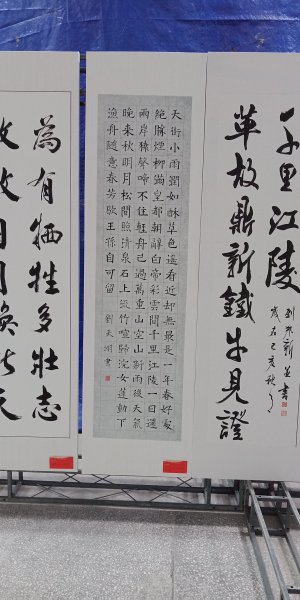 千里江陵
革故鼎新鐵牛見證
歲在己亥秋月
天街小雨潤如酥草色遥看近却無最是一年春好處
絕勝煙柳滿皇都朝辭白帝彩雲間千里江陵一日還
兩岸猿聲啼不住輕舟已過萬重山空山新雨後天氣
晚来秋明月松間照清泉石上流竹喧歸浣女蓮動下
漁舟隨意春芳歇王孫自可留 劉天湖書
為有牺牲多壯志
日月換
天